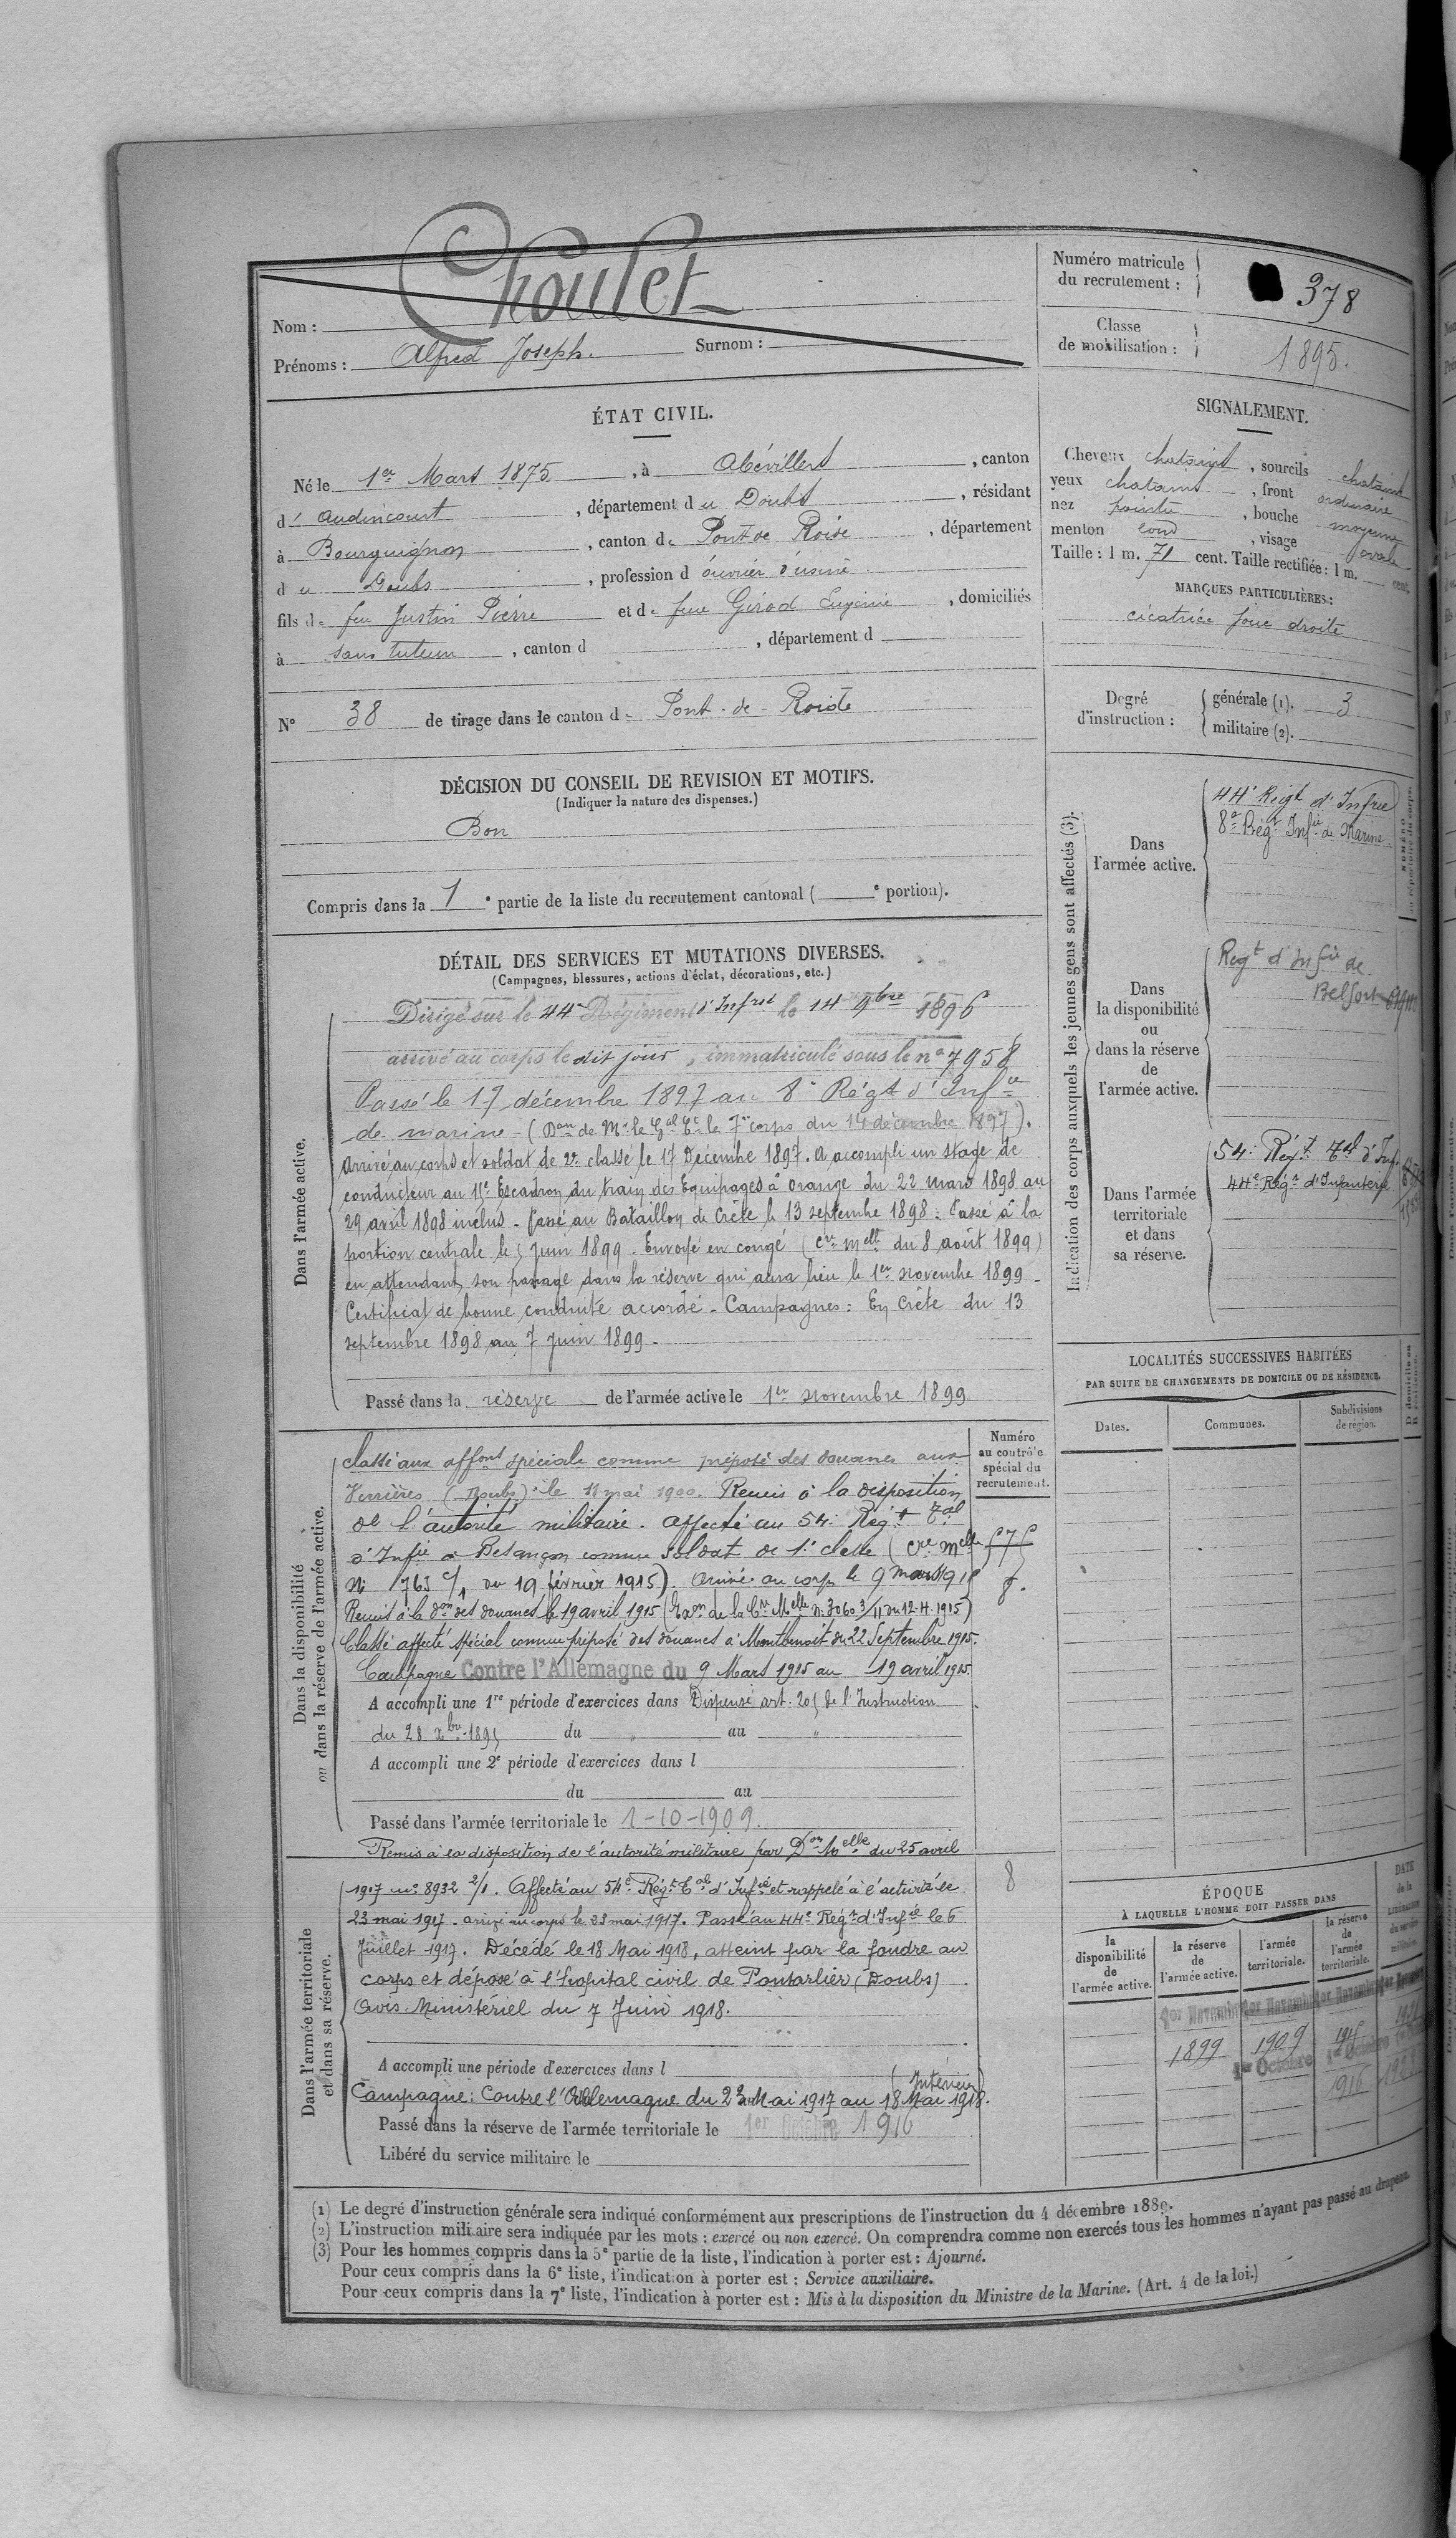 Choulet
Nom :
Prénoms : Alfred Joseph. Surnom :
Numéro matricule
du recrutement : 378
Classe
de mobilisation : 1895.
ÉTAT CIVIL.
Né le 1er Mars 1875, à Abévillers, canton
d' Audincourt, département du Doubs, résidant
à Bourguignon, canton de Pont de Roide, département
du Doubs, profession d'ouvrier d'usine
fils de feu Justin Pierre et de feue Girod Eugénie, domiciliés
à sans tuteur, canton d , département d
SIGNALEMENT.
Cheveux chatains, sourcils chatains
yeux chatains, front ordinaire
nez pointu, bouche moyenne
menton rond, visage ovale
Taille : 1 m. 71 cent. Taille rectifiée : 1 m. cent.
MARQUES PARTICULIÈRES :
cicatrice joue droite
N° 38 de tirage dans le canton de Pont-de-Roide
Degré
d'instruction :
générale (1). 3
militaire (2).
DÉCISION DU CONSEIL DE REVISION ET MOTIFS.
(Indiquer la nature des dispenses.)
Bon
Compris dans la 1e partie de la liste du recrutement cantonal ( e portion).
DÉTAIL DES SERVICES ET MUTATIONS DIVERSES.
(Campagnes, blessures, actions d'éclat, décorations, etc.)
Dans l'armée active.
Dirigé sur le 44e Régiment d'Infrie le 14 9bre 1896
arrivé au corps le dit jour, immatriculé sous le n° 7958
Passé le 17 décembre 1897 au 8e Régt d'Infie
de marine (Don de Mr le Gal Ct le 7e corps du 14 décembre 1897).
Arrivé au corps et soldat de 2e classe le 17 Décembre 1897. A accompli un stage de
conducteur au 11e Escadron du train des Equipages à Orange du 22 mars 1898 au
29 avril 1898 inclus - Passé au Bataillon de Crête le 13 septembre 1898 : Passé à la
portion centrale le 5 Juin 1899. Envoyé en congé (Cre Melle du 8 août 1899)
en attendant son passage dans la réserve qui aura lieu le 1er novembre 1899 -
Certificat de bonne conduite accordé - Campagnes : En Crête du 13
septembre 1898 au 7 Juin 1899 -
Passé dans la réserve de l'armée active le 1er novembre 1899
Dans la disponibilité
ou dans la réserve de l'armée active.
Numéro
au contrôle
spécial du
recrutement.
Classé aux affons spéciale comme préposé des douanes aux
Verrières (Doubs) le 11 mai 1900. Remis à la disposition
de l'autorité militaire. affecté au 54e Régt Tal
d'Infie à Besançon comme Soldat de 1e classe (Cre Melle
N° 1763 c/1 du 19 février 1915). Arrivé au corps le 9 mars 1915
Remis à la don des douanes le 19 avril 1915 (Exon de la Cre Melle N° 3060 3/11 du 12.4.1915)
Classé affecté spécial comme préposé des douanes à Montbenoit du 22 Septembre 1915.
Campagne Contre l'Allemagne du 9 Mars 1915 au 19 avril 1915.
A accompli une 1re période d'exercices dans Dispensé art. 205 de l'Instruction
du 28 Xbre 1895 du " au "
A accompli une 2e période d'exercices dans l
du au
Passé dans l'armée territoriale le 1-10-1909.
Remis à la disposition de l'autorité militaire par Don Melle du 25 avril
Dans l'armée territoriale
et dans sa réserve.
8
1917 no 8932 2/1. Affecté au 54e Régt Tal d'Infie et rappelé à l'activité le
23 mai 1917. arrivé au corps le 23 mai 1917. Passé au 44e Régt d'Infie le 6
Juillet 1917. Décédé le 18 Mai 1918, atteint par la foudre au
corps et déposé à l'hopital civil de Pontarlier (Doubs)
Avis Ministériel du 7 Juin 1918.
A accompli une période d'exercices dans l
(Intérieur)
Campagne : Contre l'Allemagne du 23 Mai 1917 au 18 Mai 1918.
Passé dans la réserve de l'armée territoriale le 1er Octobre 1916
Libéré du service militaire le
Indication des corps auxquels les jeunes gens sont affectés (3).
Dans
l'armée active.
44e Régt d'Infrie
8e Régt Infie de Marine
Dans
la disponibilité
ou
dans la réserve
de
l'armée active.
Régt d'Infie de
Belfort
Dans l'armée
territoriale
et dans
sa réserve.
54e Régt Tal d'Inf.
44e Régt d'Infanterie
LOCALITÉS SUCCESSIVES HABITÉES
PAR SUITE DE CHANGEMENTS DE DOMICILE OU DE RÉSIDENCE.
Dates.
Communes.
Subdivisions
de région.
ÉPOQUE
À LAQUELLE L'HOMME DOIT PASSER DANS
DATE
de la
libération
du service
militaire.
la
disponibilité
de
l'armée active.
la réserve
de
l'armée active.
l'armée
territoriale.
la réserve
de
l'armée
territoriale.
1er Novembre 1er Novembre 1er Novembre 1er Novembre
1899 1909
1er Octobre 1er Octobre
1916
(1) Le degré d'instruction générale sera indiqué conformément aux prescriptions de l'instruction du 4 décembre 1889.
(2) L'instruction militaire sera indiquée par les mots : exercé ou non exercé. On comprendra comme non exercés tous les hommes n'ayant pas passé au drapeau.
(3) Pour les hommes compris dans la 5e partie de la liste, l'indication à porter est : Ajourné.
Pour ceux compris dans la 6e liste, l'indication à porter est : Service auxiliaire.
Pour ceux compris dans la 7e liste, l'indication à porter est : Mis à la disposition du Ministre de la Marine. (Art. 4 de la loi.)